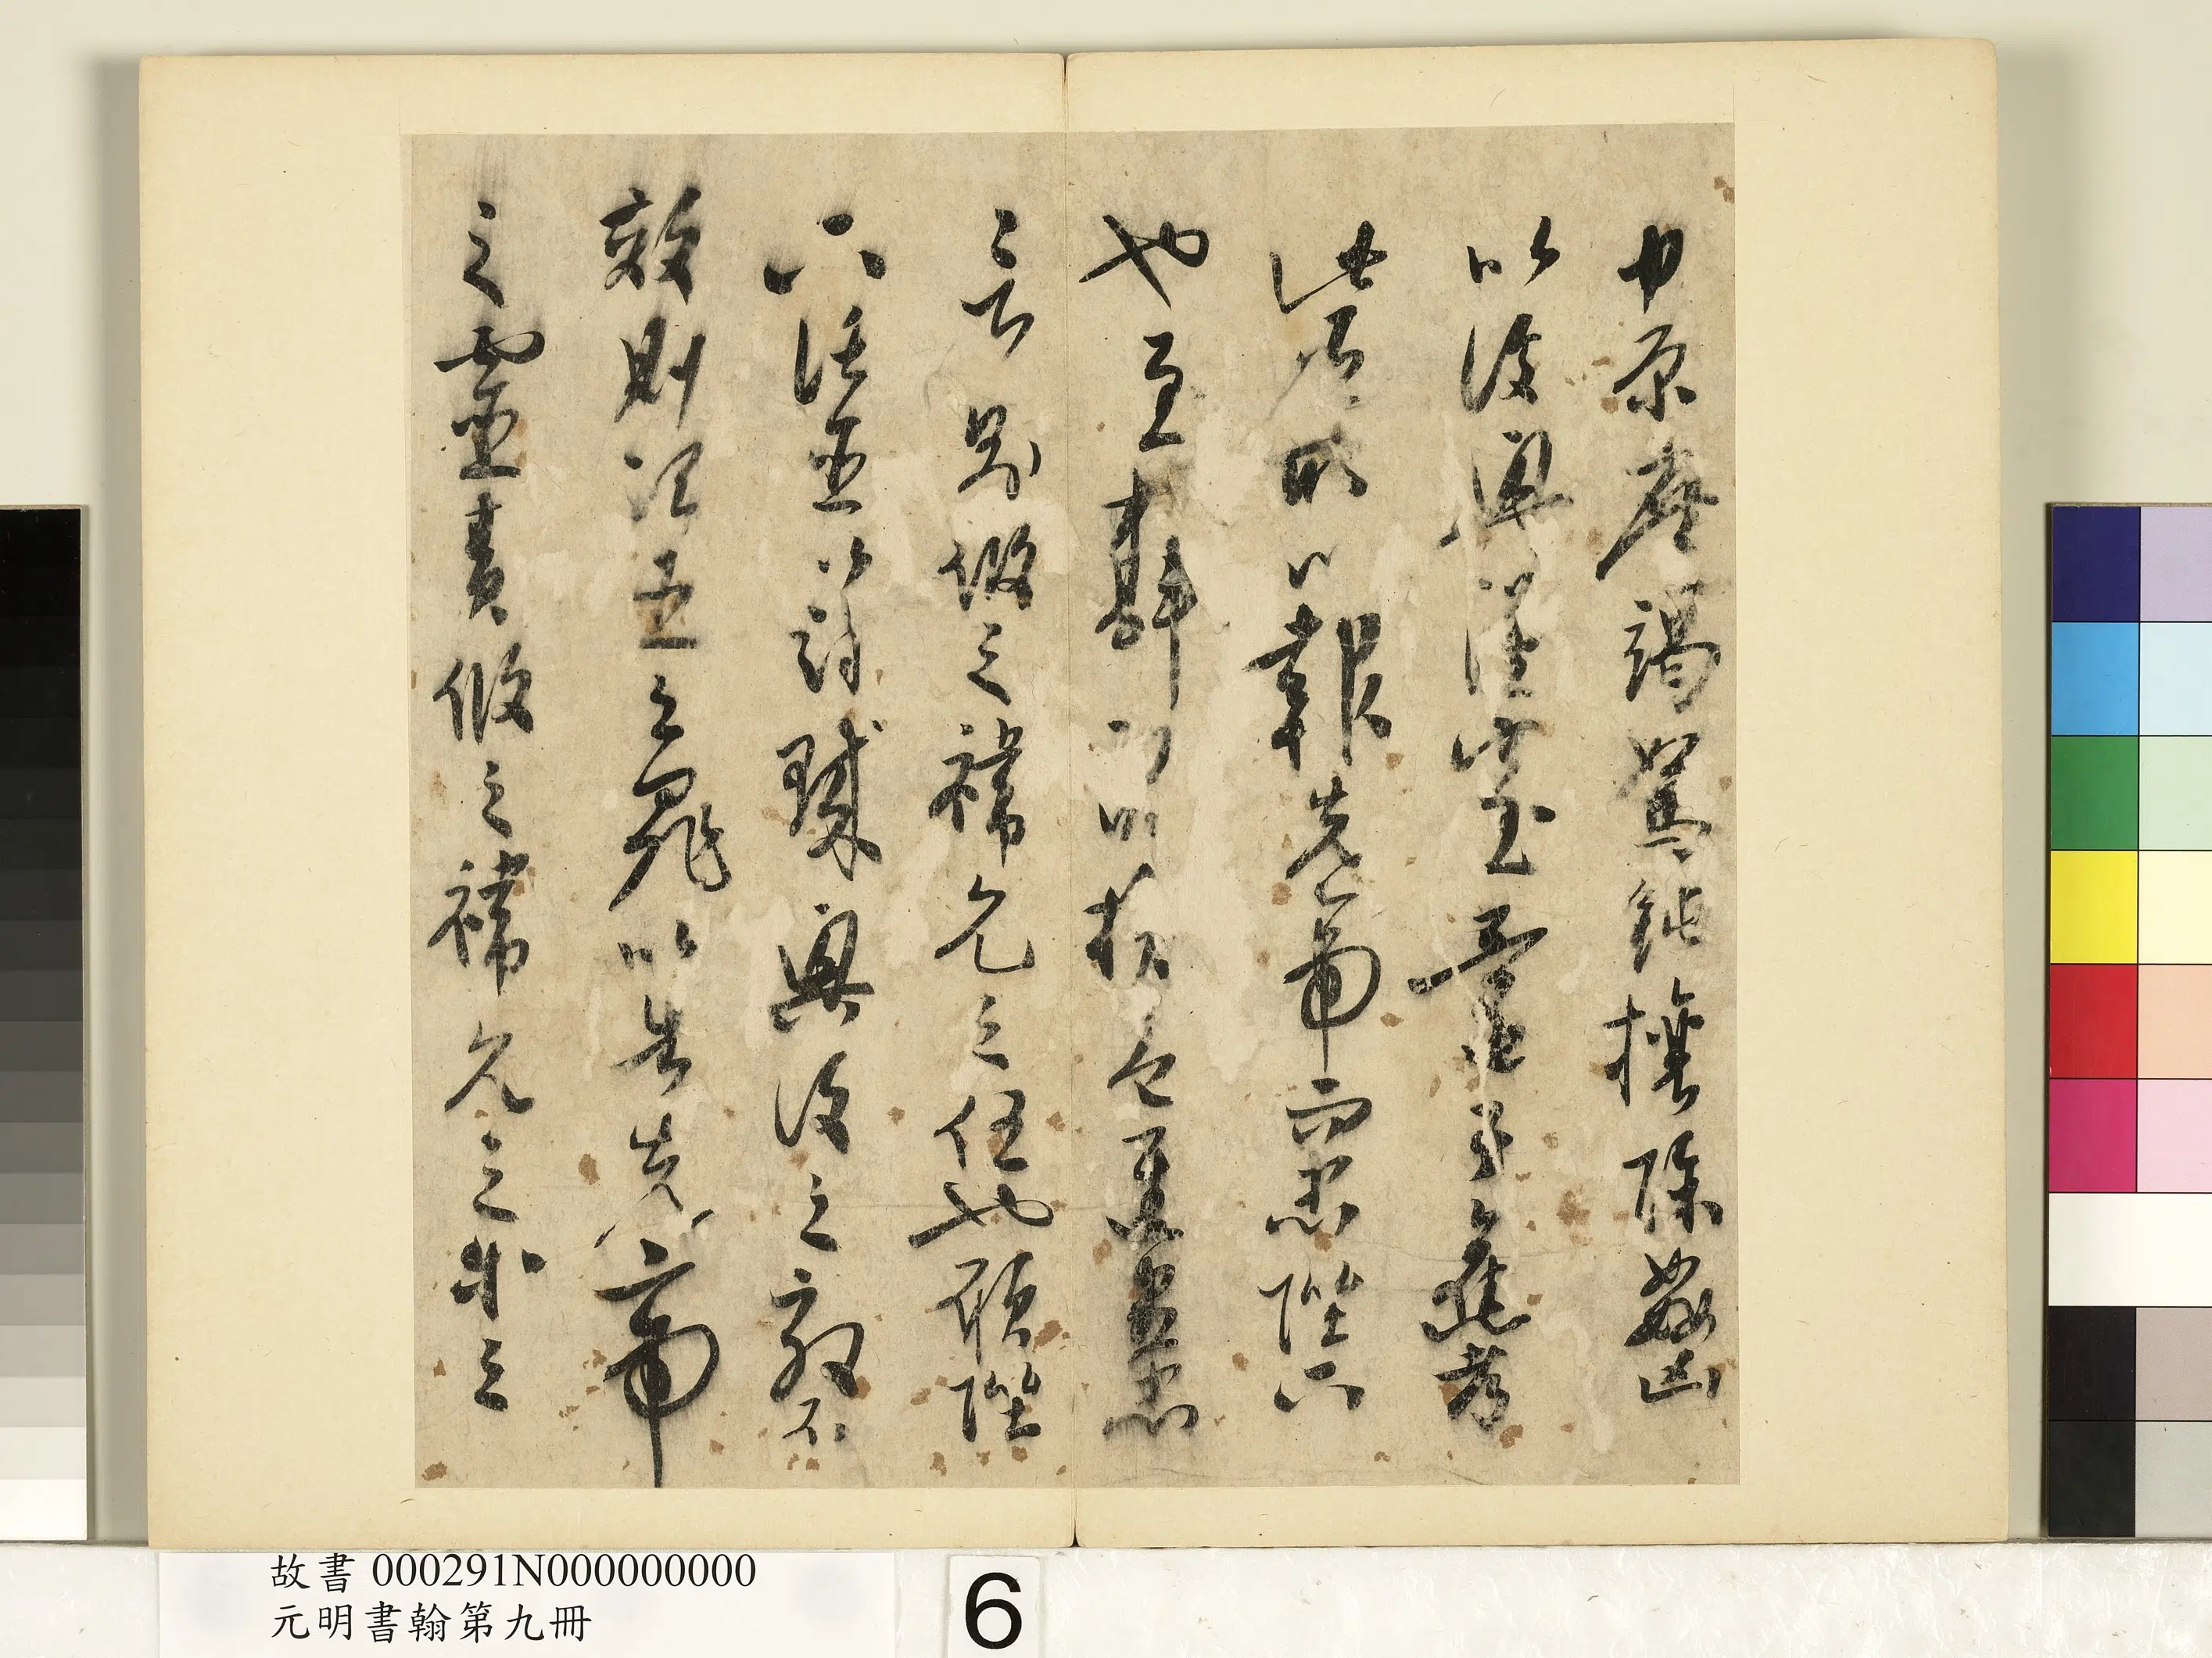 中原庶竭駑鈍攘除姦凶
以復興漢室還于舊都
此臣所以報先帝而忠陛下
也至斟酌損益進盡忠
言則攸之禕允之任也願陛
下託臣以討賊興復之效不
效則治臣之罪以告先帝
之靈責攸之禕允之等之
故書 000291N000000000
元明書翰第九冊
6